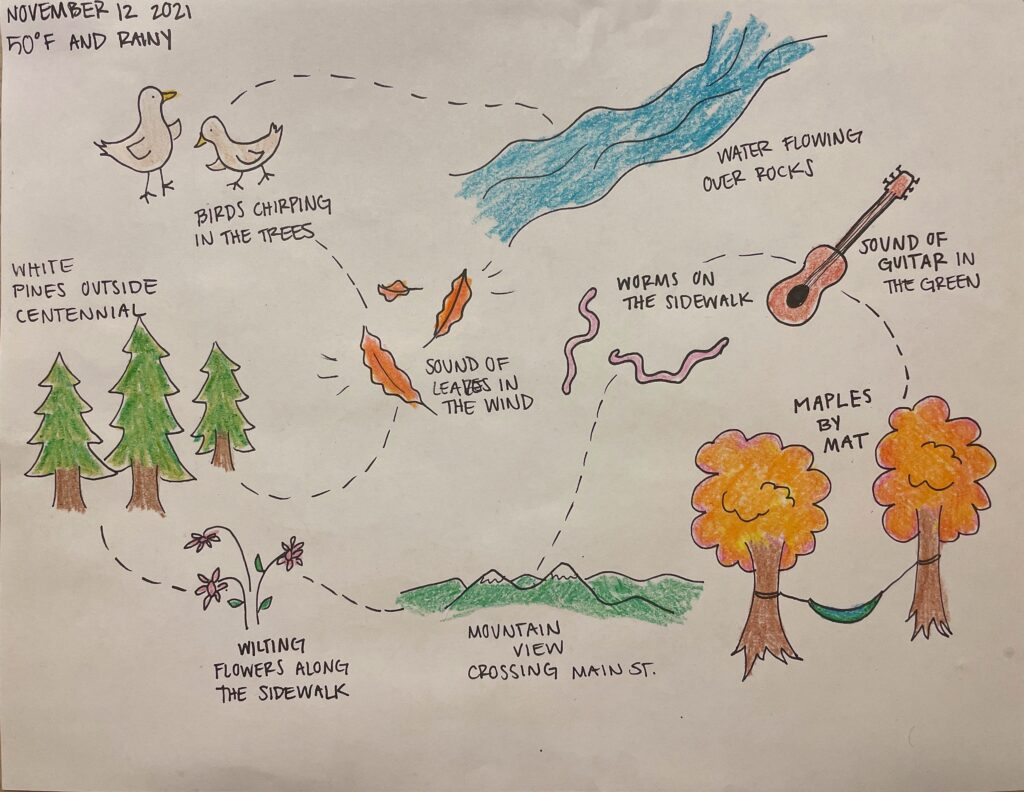 NOVEMBER 12 2021
50°F AND RAINY
BIRDS CHIRPING
IN THE TREES
WATER FLOWING
OVER ROCKS
WHITE
PINES OUTSIDE
CENTENNIAL
SOUND OF
LEAVES IN
THE WIND
WORMS ON
THE SIDEWALK
SOUND OF
GUITAR IN
THE GREEN
MAPLES
BY
MAT
WILTING
FLOWERS ALONG
THE SIDEWALK
MOUNTAIN
VIEW
CROSSING MAIN ST.